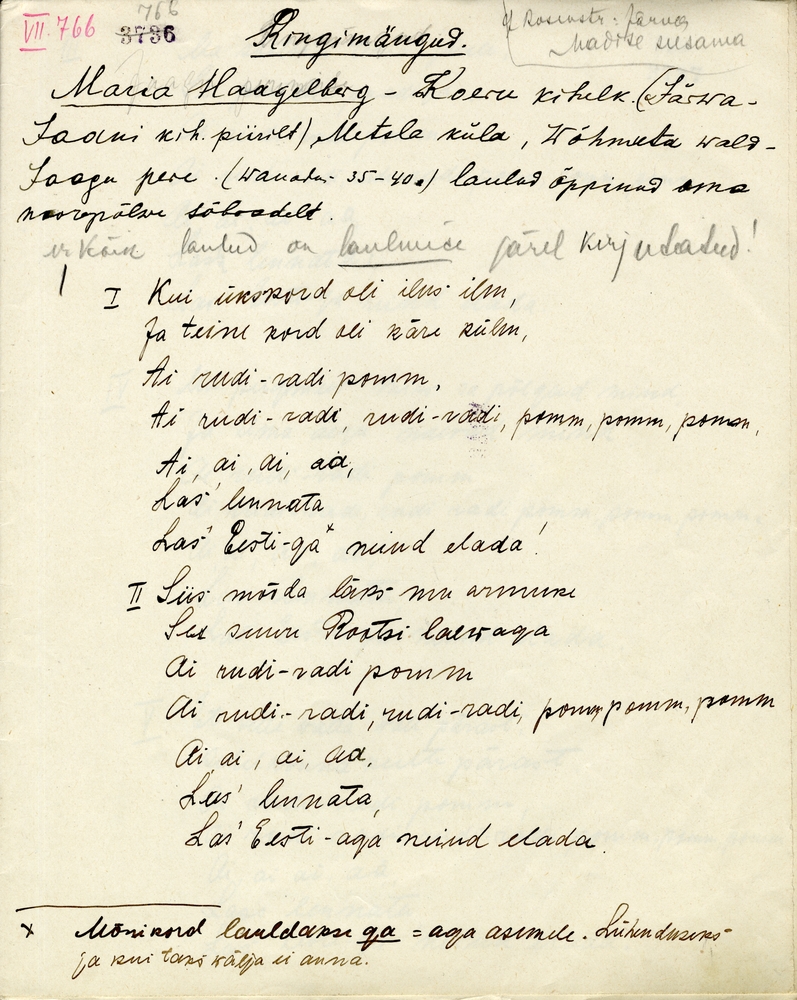 VII. 766
766
3736
Ringimängud.
Madise
Maria Haagelberg - Koeru kihelk. (Järwa-
Jaani kih. piirilt) Metsla küla, Wõhmuta wald-
Jaagu pere. (wanadus 35-40a) laulud õppinud oma
noorepõlwe sõbradelt.
Kõik laulud on laulmise järel kirjutatud!
I Kui ükskord oli ilus ilm,
Ja teine kord oli käre külm,
Ai rudi-radi pomm,
Ai rudi-radi, rudi-radi, pomm, pomm, pomm,
Ai, ai, ai, aa,
Las' lennata
Las' Eesti-ga x neiud elada!
II Siis mööda läks mu armuke
See suure Rootsi laewaga
Ai rudi-radi pomm
Ai rudi-radi, rudi-radi, pomm, pomm, pomm
Ai, ai, ai, aa,
Las' lennata,
Las' Eesti-aga neiud elada.
x Mõnikord lauldakse ga = aga asemele. Lühenduseks
ja kui takt wälja ei anna.